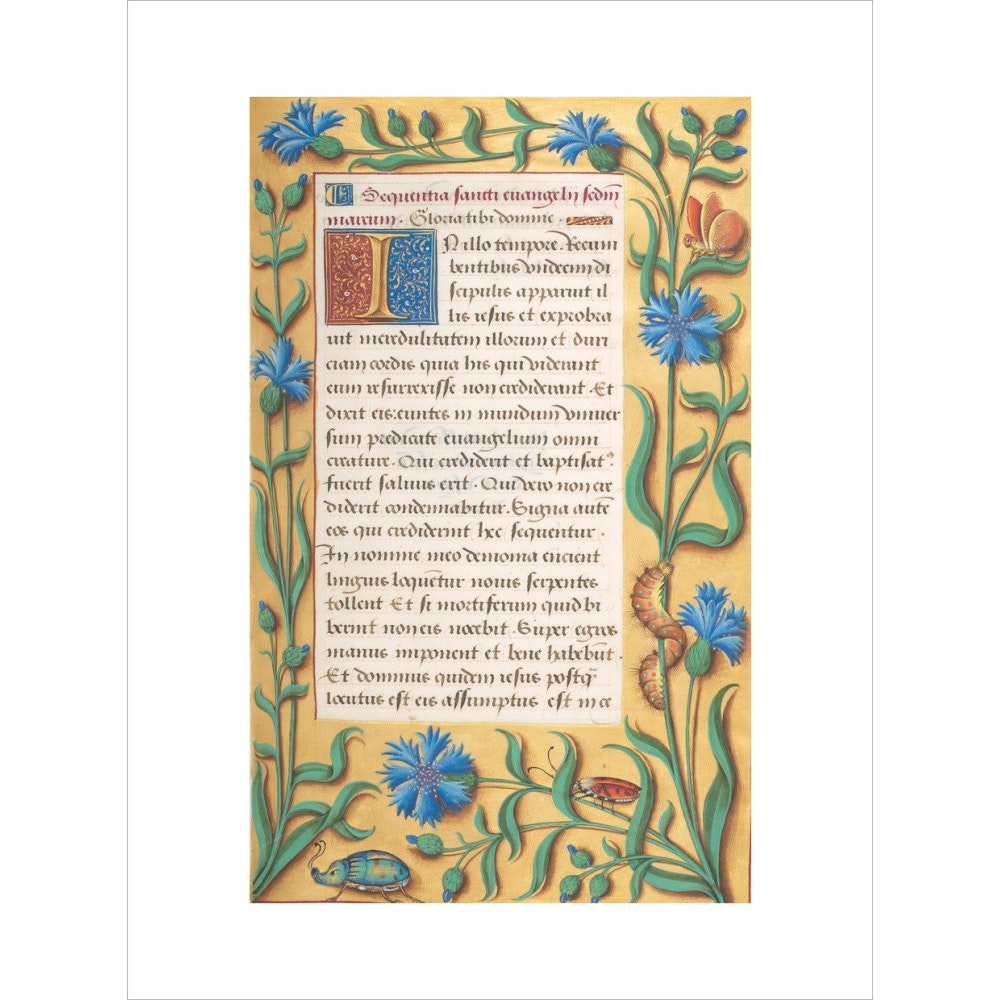 Sequentia sancti euangelij secdm̄
marcum. Gloria tibi domine.
IN illo tempore. Recum
bentibus vndecim di
scipulis apparuit il
lis iesus et exprobra
uit incredulitatem illorum et duri
ciam cordis quia his qui viderant
eum resurrexisse non crediderant. Et
dixit eis: euntes in mundum vniuer
sum predicate euangelium omni
creature. Qui crediderit et baptisat9
fuerit saluus erit. Qui vero non cre
diderit condemnabitur. Signa autē
eos qui crediderint hec sequentur.
In nomine meo demonia eiicient
linguis loquētur nouis serpentes
tollent Et si mortiferum quid bi
berint non eis nocebit. Super egros
manus imponent et bene habebūt.
Et dominus quidem iesus postq̄
locutus est eis assumptus est in ce